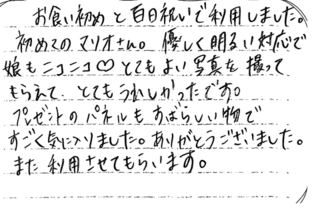 お食い初めと百日祝いで利用しました。
初めてのマリオさん。優しく明るい対応で
娘もニコニコ♡とてもよい写真を撮って
もらえて、とてもうれしかったです。
プレゼントのパネルもすばらしい物で
すごく気に入りました。ありがとうございました。
また利用させてもらいます。